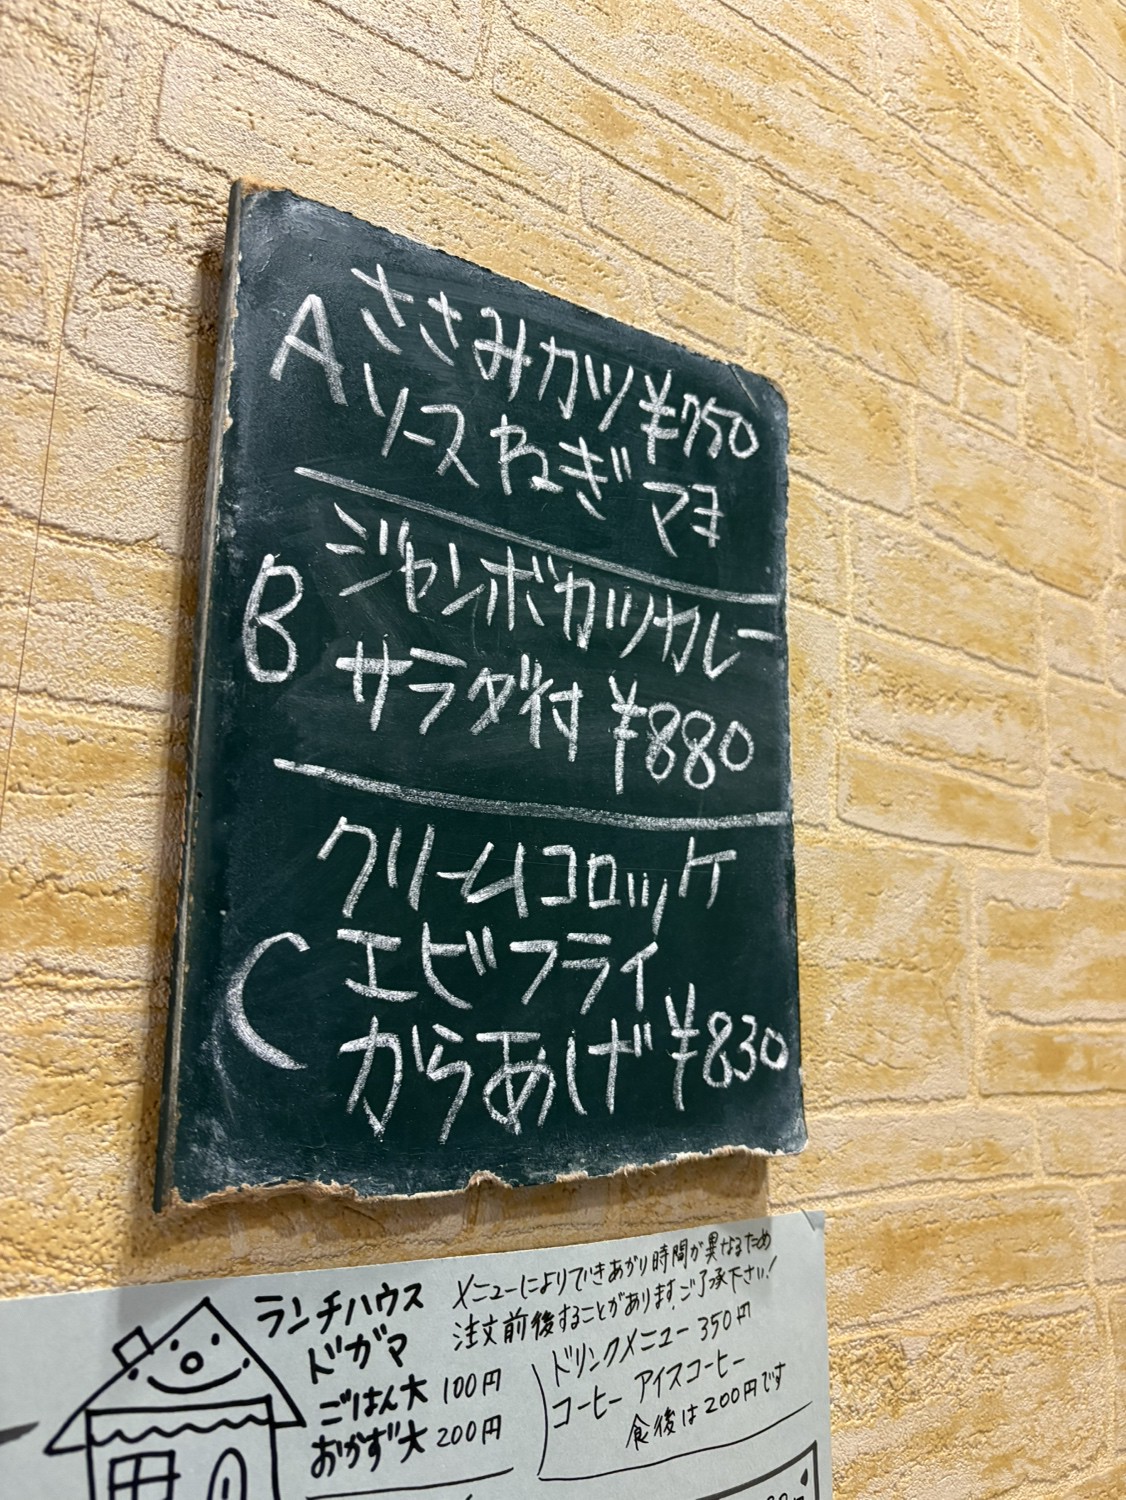 A ささみカツ ¥750
ソースねぎマヨ
B ジャンボカツカレー
サラダ付 ¥880
C クリームコロッケ
エビフライ
からあげ ¥830
ランチハウス
ドガマ
ごはん大 100円
おかず大 200円
メニューによりできあがり時間が異なるため
注文前後することがあります。ご了承下さい!
ドリンクメニュー 350円
コーヒー アイスコーヒー
食後は200円です